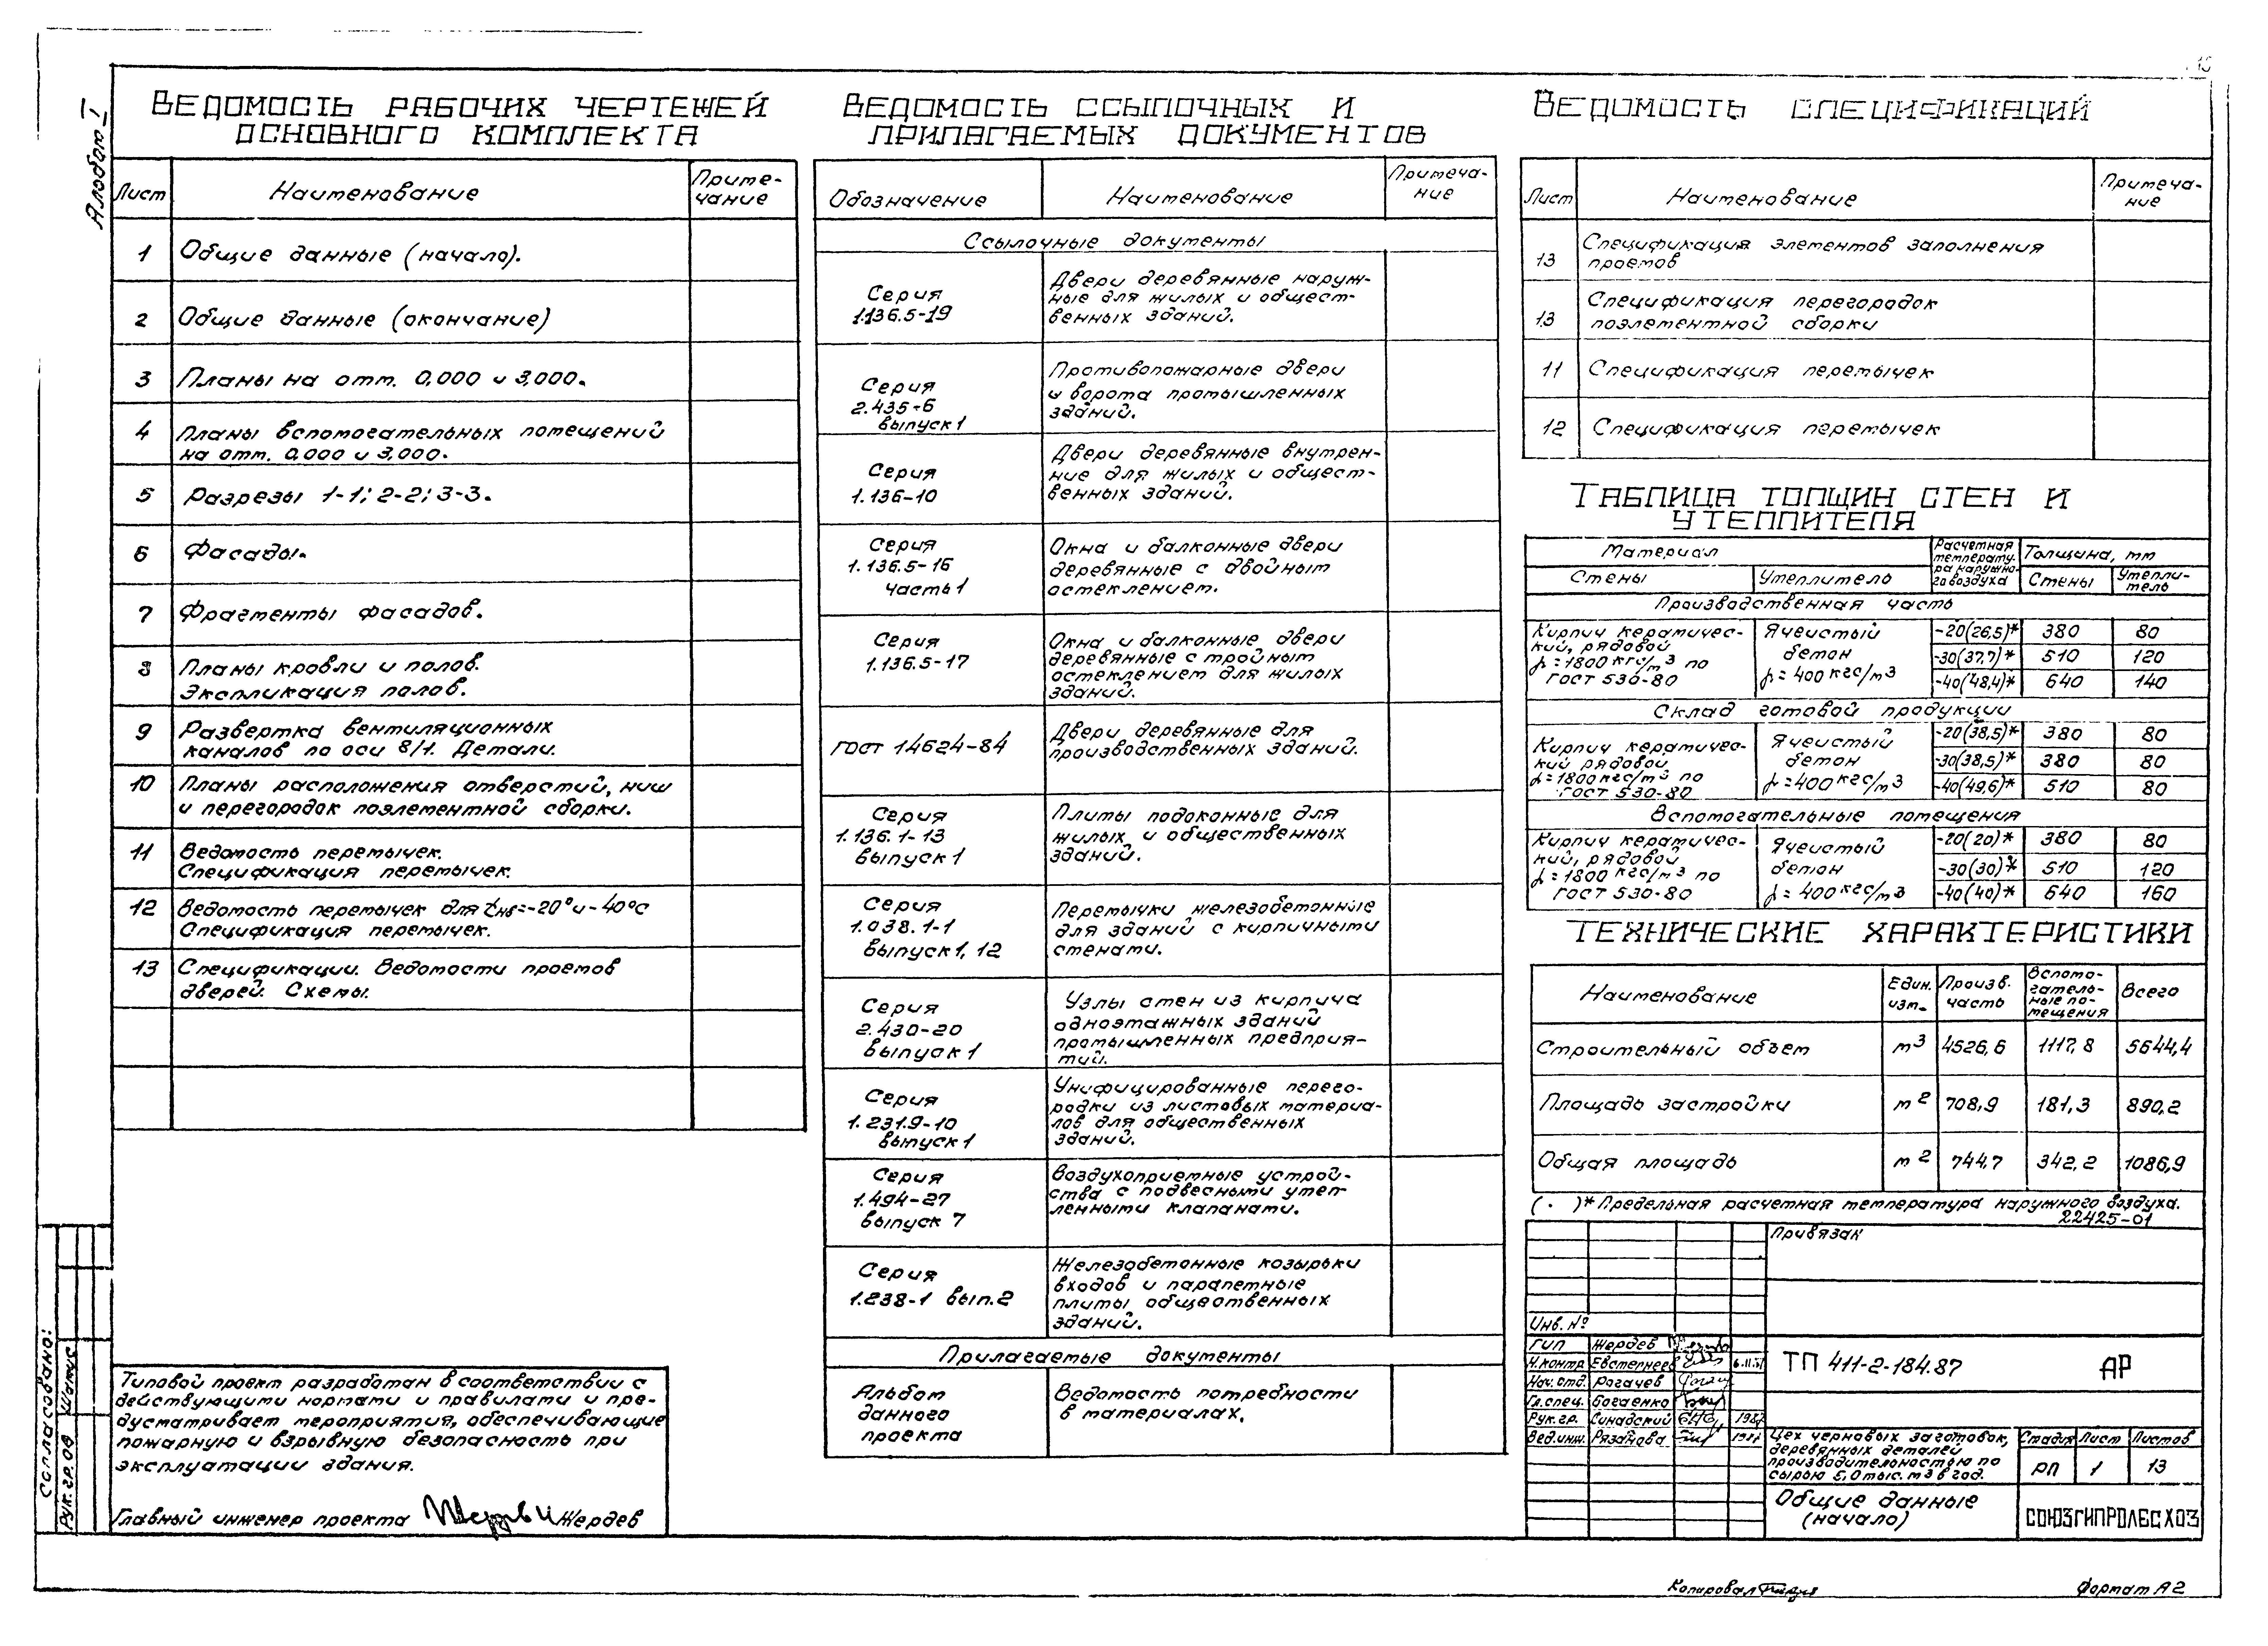 Альбом I
ВЕДОМОСТЬ РАБОЧИХ ЧЕРТЕЖЕЙ
ОСНОВНОГО КОМПЛЕКТА
Лист Наименование Приме-
чание
1 Общие данные (начало).
2 Общие данные (окончание)
3 Планы на отм. 0,000 и 3,000.
4 Планы вспомогательных помещений
на отм. 0,000 и 3,000.
5 Разрезы 1-1; 2-2; 3-3.
6 Фасады.
7 Фрагменты фасадов.
8 Планы кровли и полов.
Экспликация полов.
9 Развертка вентиляционных
каналов по оси 8/1. Детали.
10 Планы расположения отверстий, ниш
и перегородок поэлементной сборки.
11 Ведомость перемычек.
Спецификация перемычек.
12 Ведомость перемычек для tнв=-20° и -40°С
Спецификация перемычек.
13 Спецификации. Ведомости проемов
дверей. Схемы.
Типовой проект разработан в соответствии с
действующими нормами и правилами и пре-
дусматривает мероприятия, обеспечивающие
пожарную и взрывную безопасность при
эксплуатации здания.
Главный инженер проекта Жердев
Согласовано:
Рук. гр. ОВ Шатус
ВЕДОМОСТЬ ССЫЛОЧНЫХ И
ПРИЛАГАЕМЫХ ДОКУМЕНТОВ
Обозначение Наименование Примеча-
ние
Ссылочные документы
Серия
1.136.5-19
Двери деревянные наруж-
ные для жилых и общест-
венных зданий.
Серия
2.435-6
выпуск 1
Противопожарные двери
и ворота промышленных
зданий.
Серия
1.136-10
Двери деревянные внутрен-
ние для жилых и общест-
венных зданий.
Серия
1.136.5-16
часть 1
Окна и балконные двери
деревянные с двойным
остеклением.
Серия
1.136.5-17
Окна и балконные двери
деревянные с тройным
остеклением для жилых
зданий.
ГОСТ 14624-84
Двери деревянные для
производственных зданий.
Серия
1.136.1-13
выпуск 1
Плиты подоконные для
жилых и общественных
зданий.
Серия
1.038.1-1
выпуск 1, 12
Перемычки железобетонные
для зданий с кирпичными
стенами.
Серия
2.430-20
выпуск 1
Узлы стен из кирпича
одноэтажных зданий
промышленных предприя-
тий.
Серия
1.231.9-10
выпуск 1
Унифицированные перего-
родки из листовых материа-
лов для общественных
зданий.
Серия
1.494-27
выпуск 7
Воздухоприемные устрой-
ства с подвесными утеп-
ленными клапанами.
Серия
1.238-1 вып.2
Железобетонные козырьки
входов и парапетные
плиты общественных
зданий.
Прилагаемые документы
Альбом
данного
проекта
Ведомость потребности
в материалах.
ВЕДОМОСТЬ СПЕЦИФИКАЦИЙ
Лист Наименование Примеча-
ние
13 Спецификация элементов заполнения
проемов
13 Спецификация перегородок
поэлементной сборки
11 Спецификация перемычек
12 Спецификация перемычек
ТАБЛИЦА ТОЛЩИН СТЕН И
УТЕПЛИТЕЛЯ
Материал Расчетная
температу-
ра наружно-
го воздуха
Толщина, мм
Стены Утеплитель Стены Утепли-
тель
Производственная часть
Кирпич керамичес-
кий, рядовой
γ=1800 кгс/м3 по
ГОСТ 530-80
Ячеистый
бетон
γ=400 кгс/м3
-20(26,5)* 380 80
-30(37,7)* 510 120
-40(48,4)* 640 140
Склад готовой продукции
Кирпич керамичес-
кий рядовой
γ=1800 кгс/м3 по
ГОСТ 530-80
Ячеистый
бетон
γ=400 кгс/м3
-20(38,5)* 380 80
-30(38,5)* 380 80
-40(49,6)* 510 80
Вспомогательные помещения
Кирпич керамичес-
кий, рядовой
γ=1800 кгс/м3 по
ГОСТ 530-80
Ячеистый
бетон
γ=400 кгс/м3
-20(20)* 380 80
-30(30)* 510 120
-40(40)* 640 160
ТЕХНИЧЕСКИЕ ХАРАКТЕРИСТИКИ
Наименование Един.
изм. Произв.
часть Вспомо-
гатель-
ные по-
мещения Всего
Строительный объем м3 4526,6 1117,8 5644,4
Площадь застройки м2 708,9 181,3 890,2
Общая площадь м2 744,7 342,2 1086,9
( . )* Предельная расчетная температура наружного воздуха.
22425-01
Привязан
Инв. №
ГИП Жердев
Н.контр. Евстегнеев
Нач. отд. Рогачев
Гл. спец. Богаенко
Рук. гр. Синадский 1987
Вед. инж. Рязанова
ТП 411-2-184.87 АР
Цех черновых заготовок,
деревянных деталей
производительностью по
сырью 5,0 тыс. м3 в год.
Стадия Лист Листов
РП 1 13
Общие данные
(начало)
СОЮЗГИПРОЛЕСХОЗ
Копировал
Формат А2